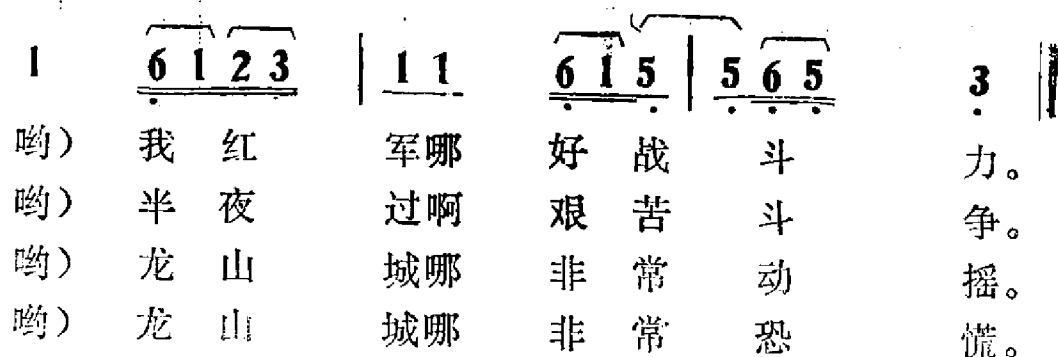 1 6 1 2 3 | 1 1 6 1 5 | 5 6 5 3 ‖
哟） 我 红 军哪 好 战 斗 力。
哟） 半 夜 过啊 艰 苦 斗 争。
哟） 龙 山 城哪 非 常 动 摇。
哟） 龙 山 城哪 非 常 恐 慌。